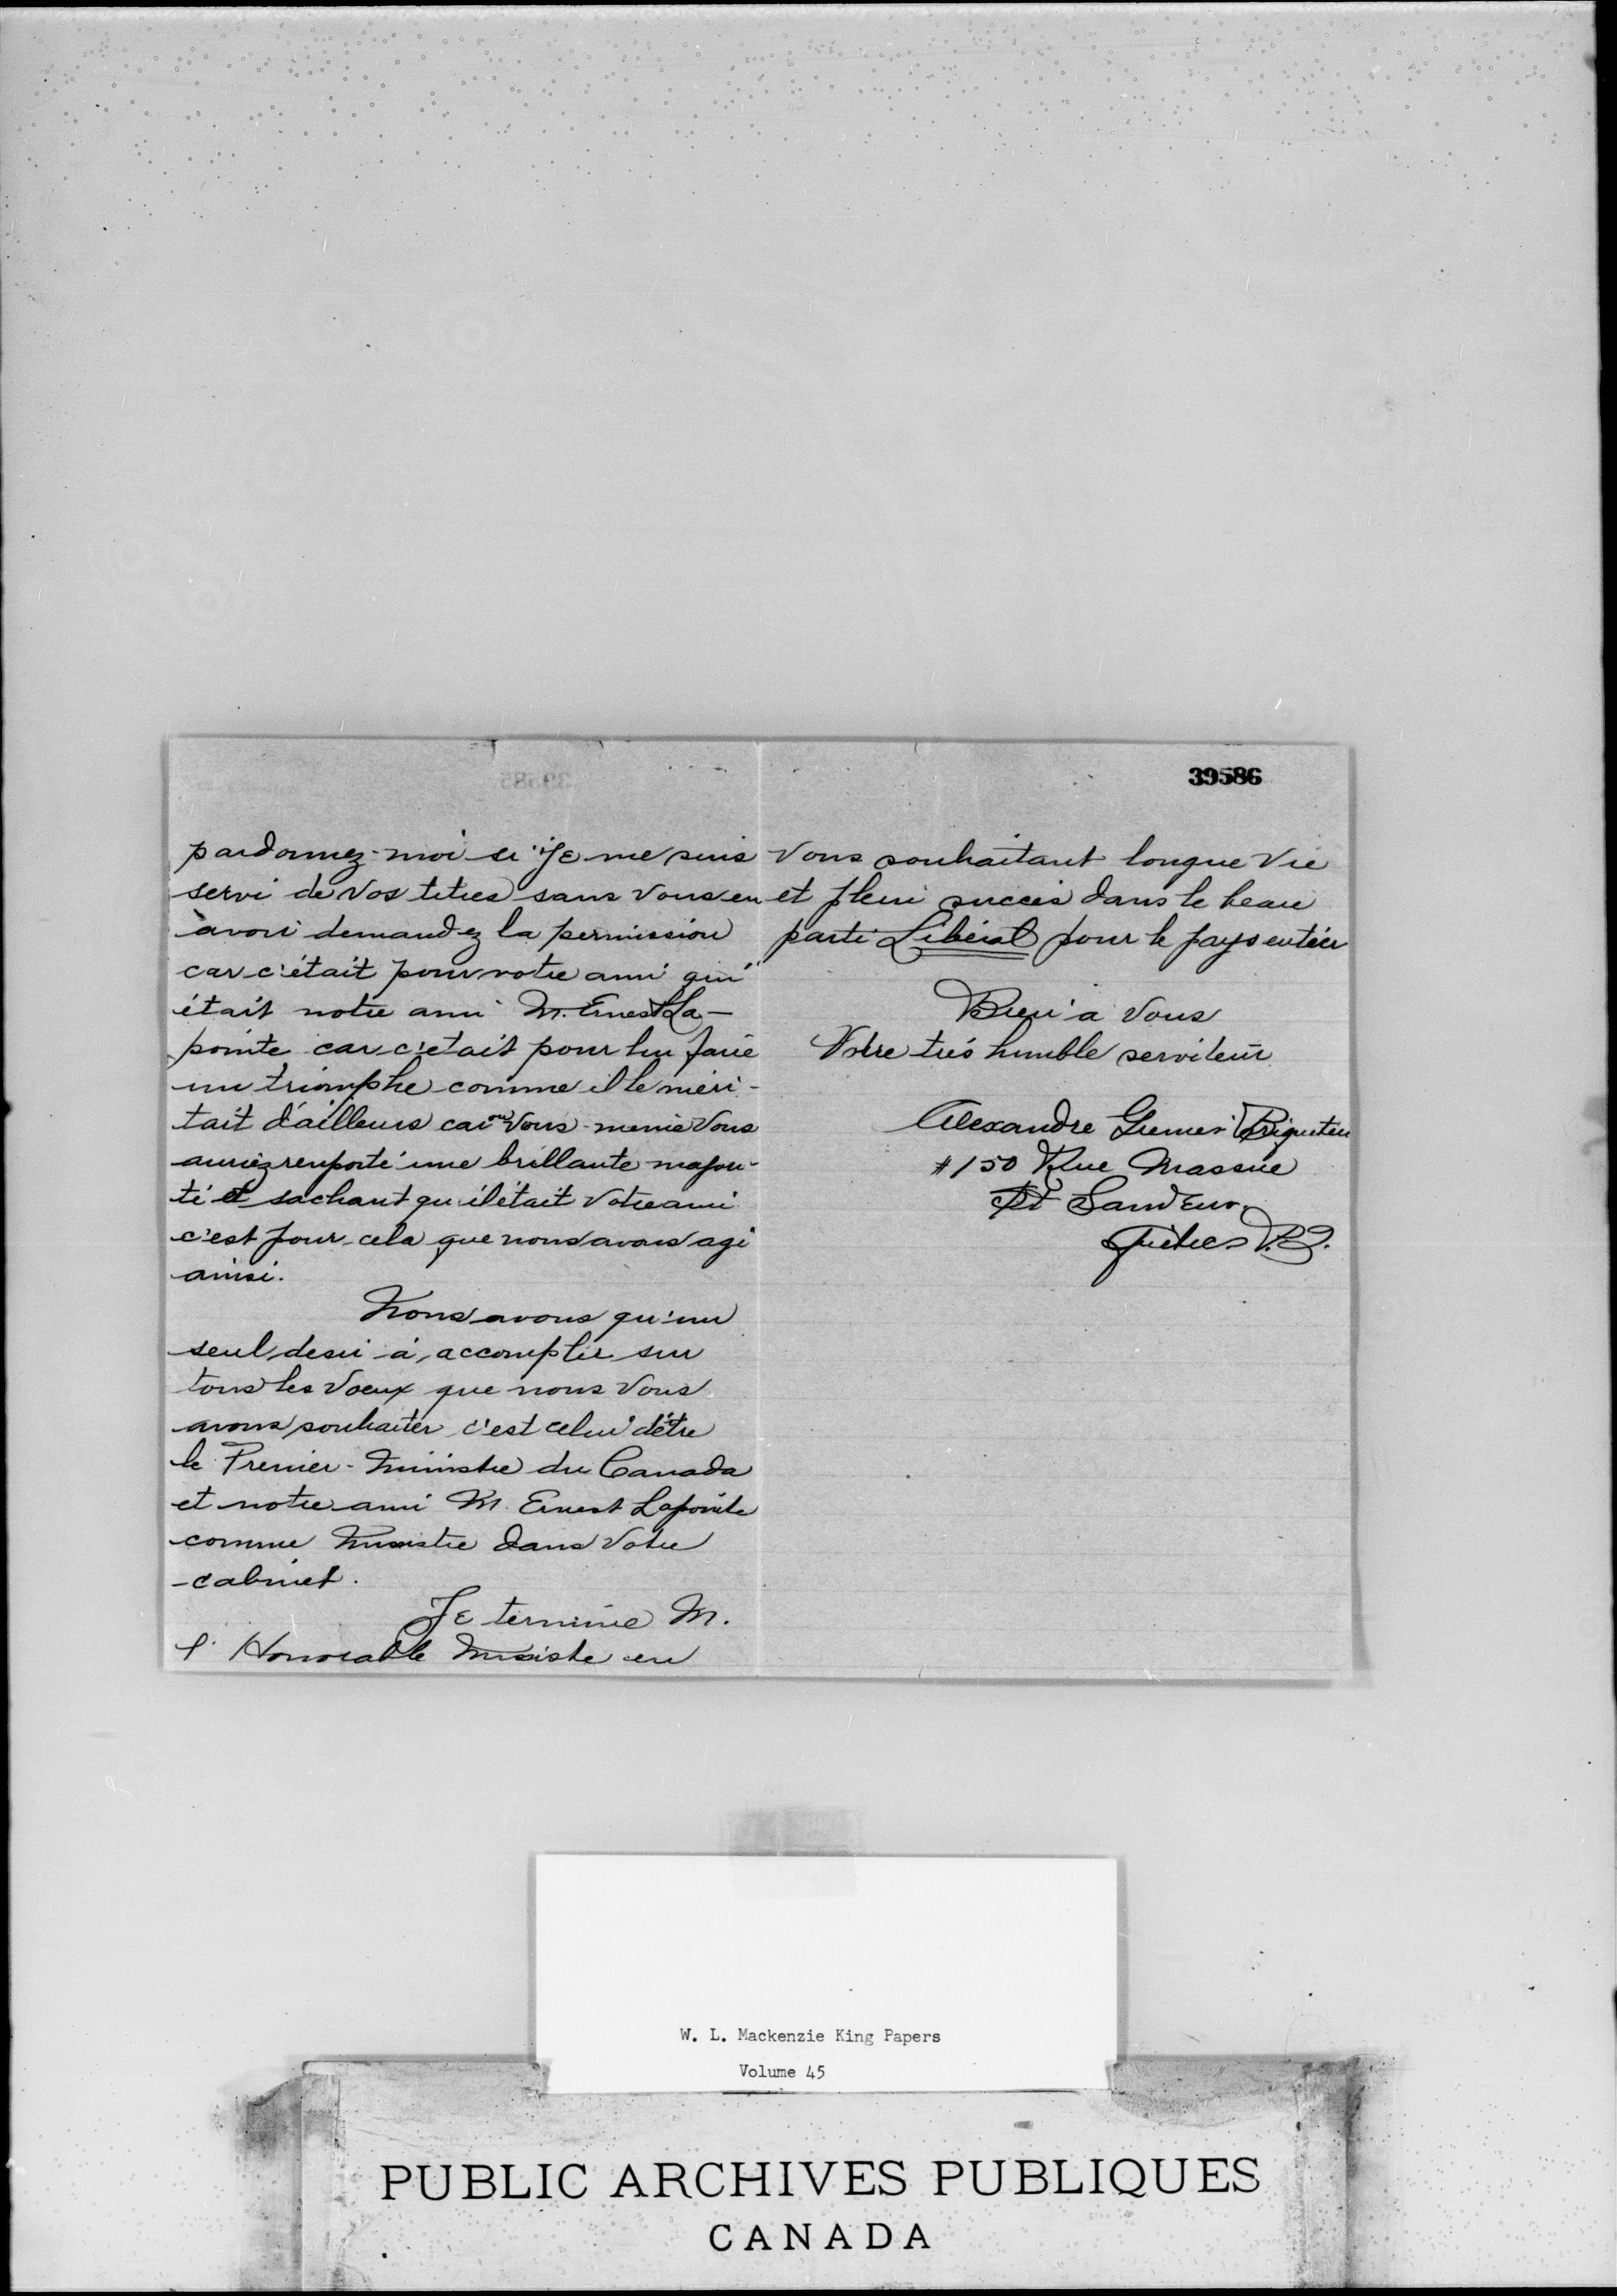 39586
pardonnez-moi si je me suis
servi de vos titres sans vous en
avoir demandez la permission
car c'était pour votre ami qui
était notre ami M. Ernest La-
pointe car c'etait pour lui faire
un triomphe comme il le méri-
tait d'ailleurs car ou vous-meme vous
auriez remporté une brillante majori-
té et sachant qu'il était votre ami
c'est pour cela que nous avons agi
ainsi.
Nous avons qu'un
seul desir à accomplir sur
tous les voeux que nous vous
avons souhaiter c'est celui d'être
le Premier-Ministre du Canada
et notre ami M. Ernest Lapointe
comme Ministre dans votre
cabinet.
Je termine M.
l'Honorable Ministre en
vous souhaitant longue vie
et plein succès dans le beau
parti Libéral pour le pays entier
Bien à vous
Votre très humble serviteur
Alexandre Grenier Briqueteur
#150 Rue Massue
St Sauveur.
Québec P.Q.
W. L. Mackenzie King Papers
Volume 45
PUBLIC ARCHIVES PUBLIQUES
CANADA